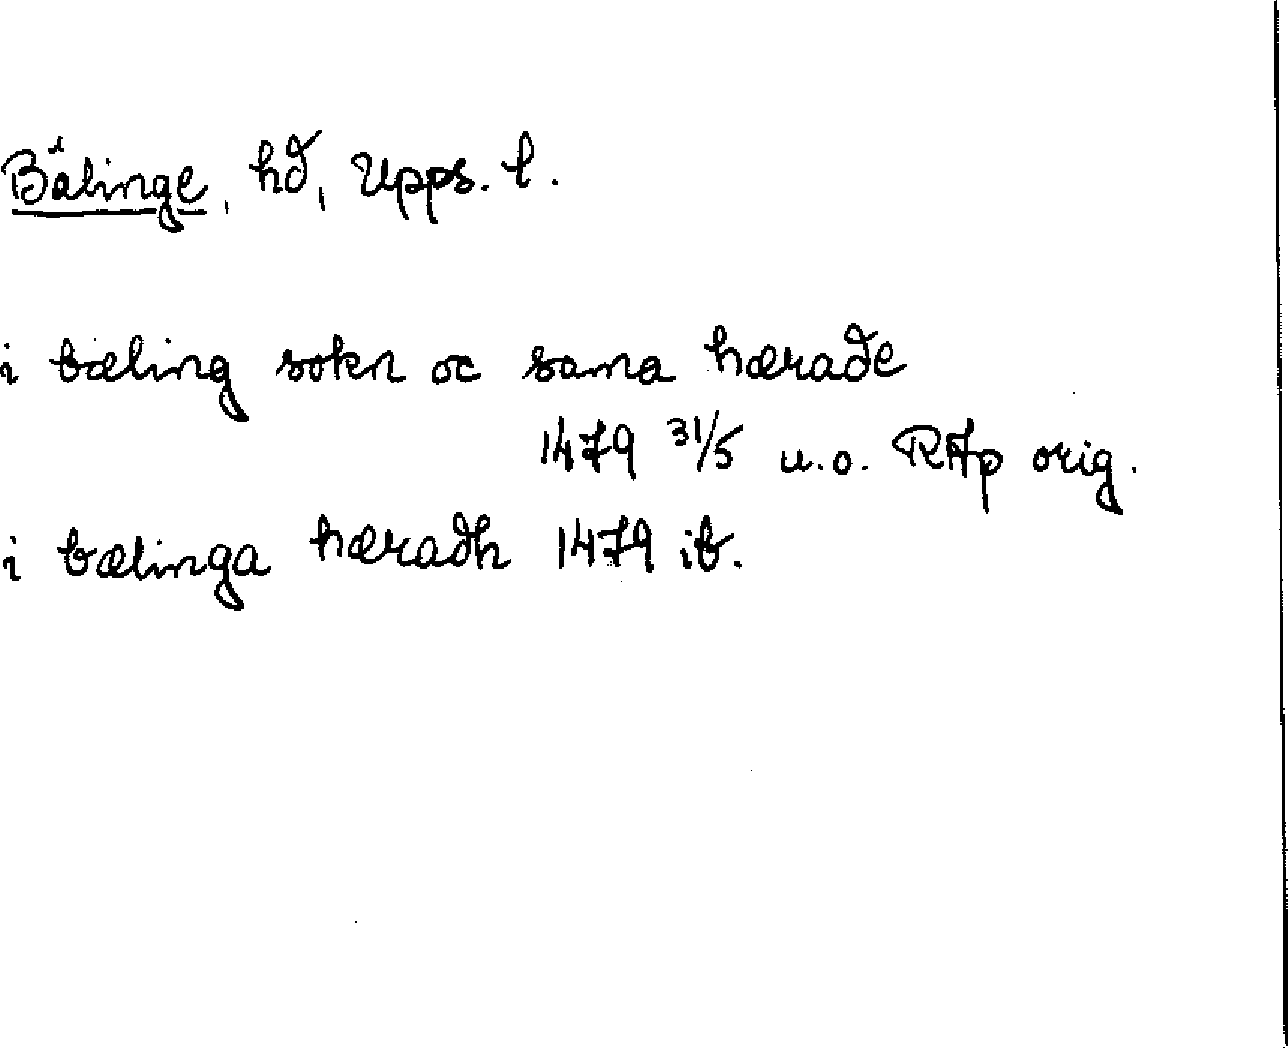 Bälinge, hd, Upps. l.
i bæling sokn oc sama hærade
1479 31/5 u.o. RAp orig.
i bælinga hæradh 1479 ib.